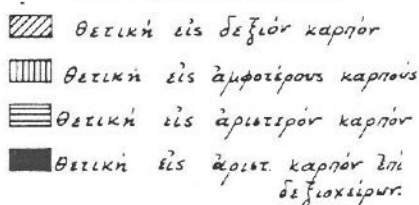 θετική εἰς δεξιόν καρπόν
θετική εἰς ἀμφοτέρους καρπούς
θετική εἰς ἀριστερόν καρπόν
θετική εἰς ἀριστ. καρπόν ἐπί
δεξιοχείρων.